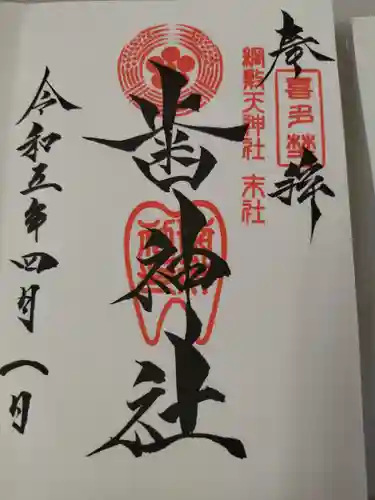 奉拝
喜多埜
綱敷天神社 末社
歯神社
令和五年四月八日